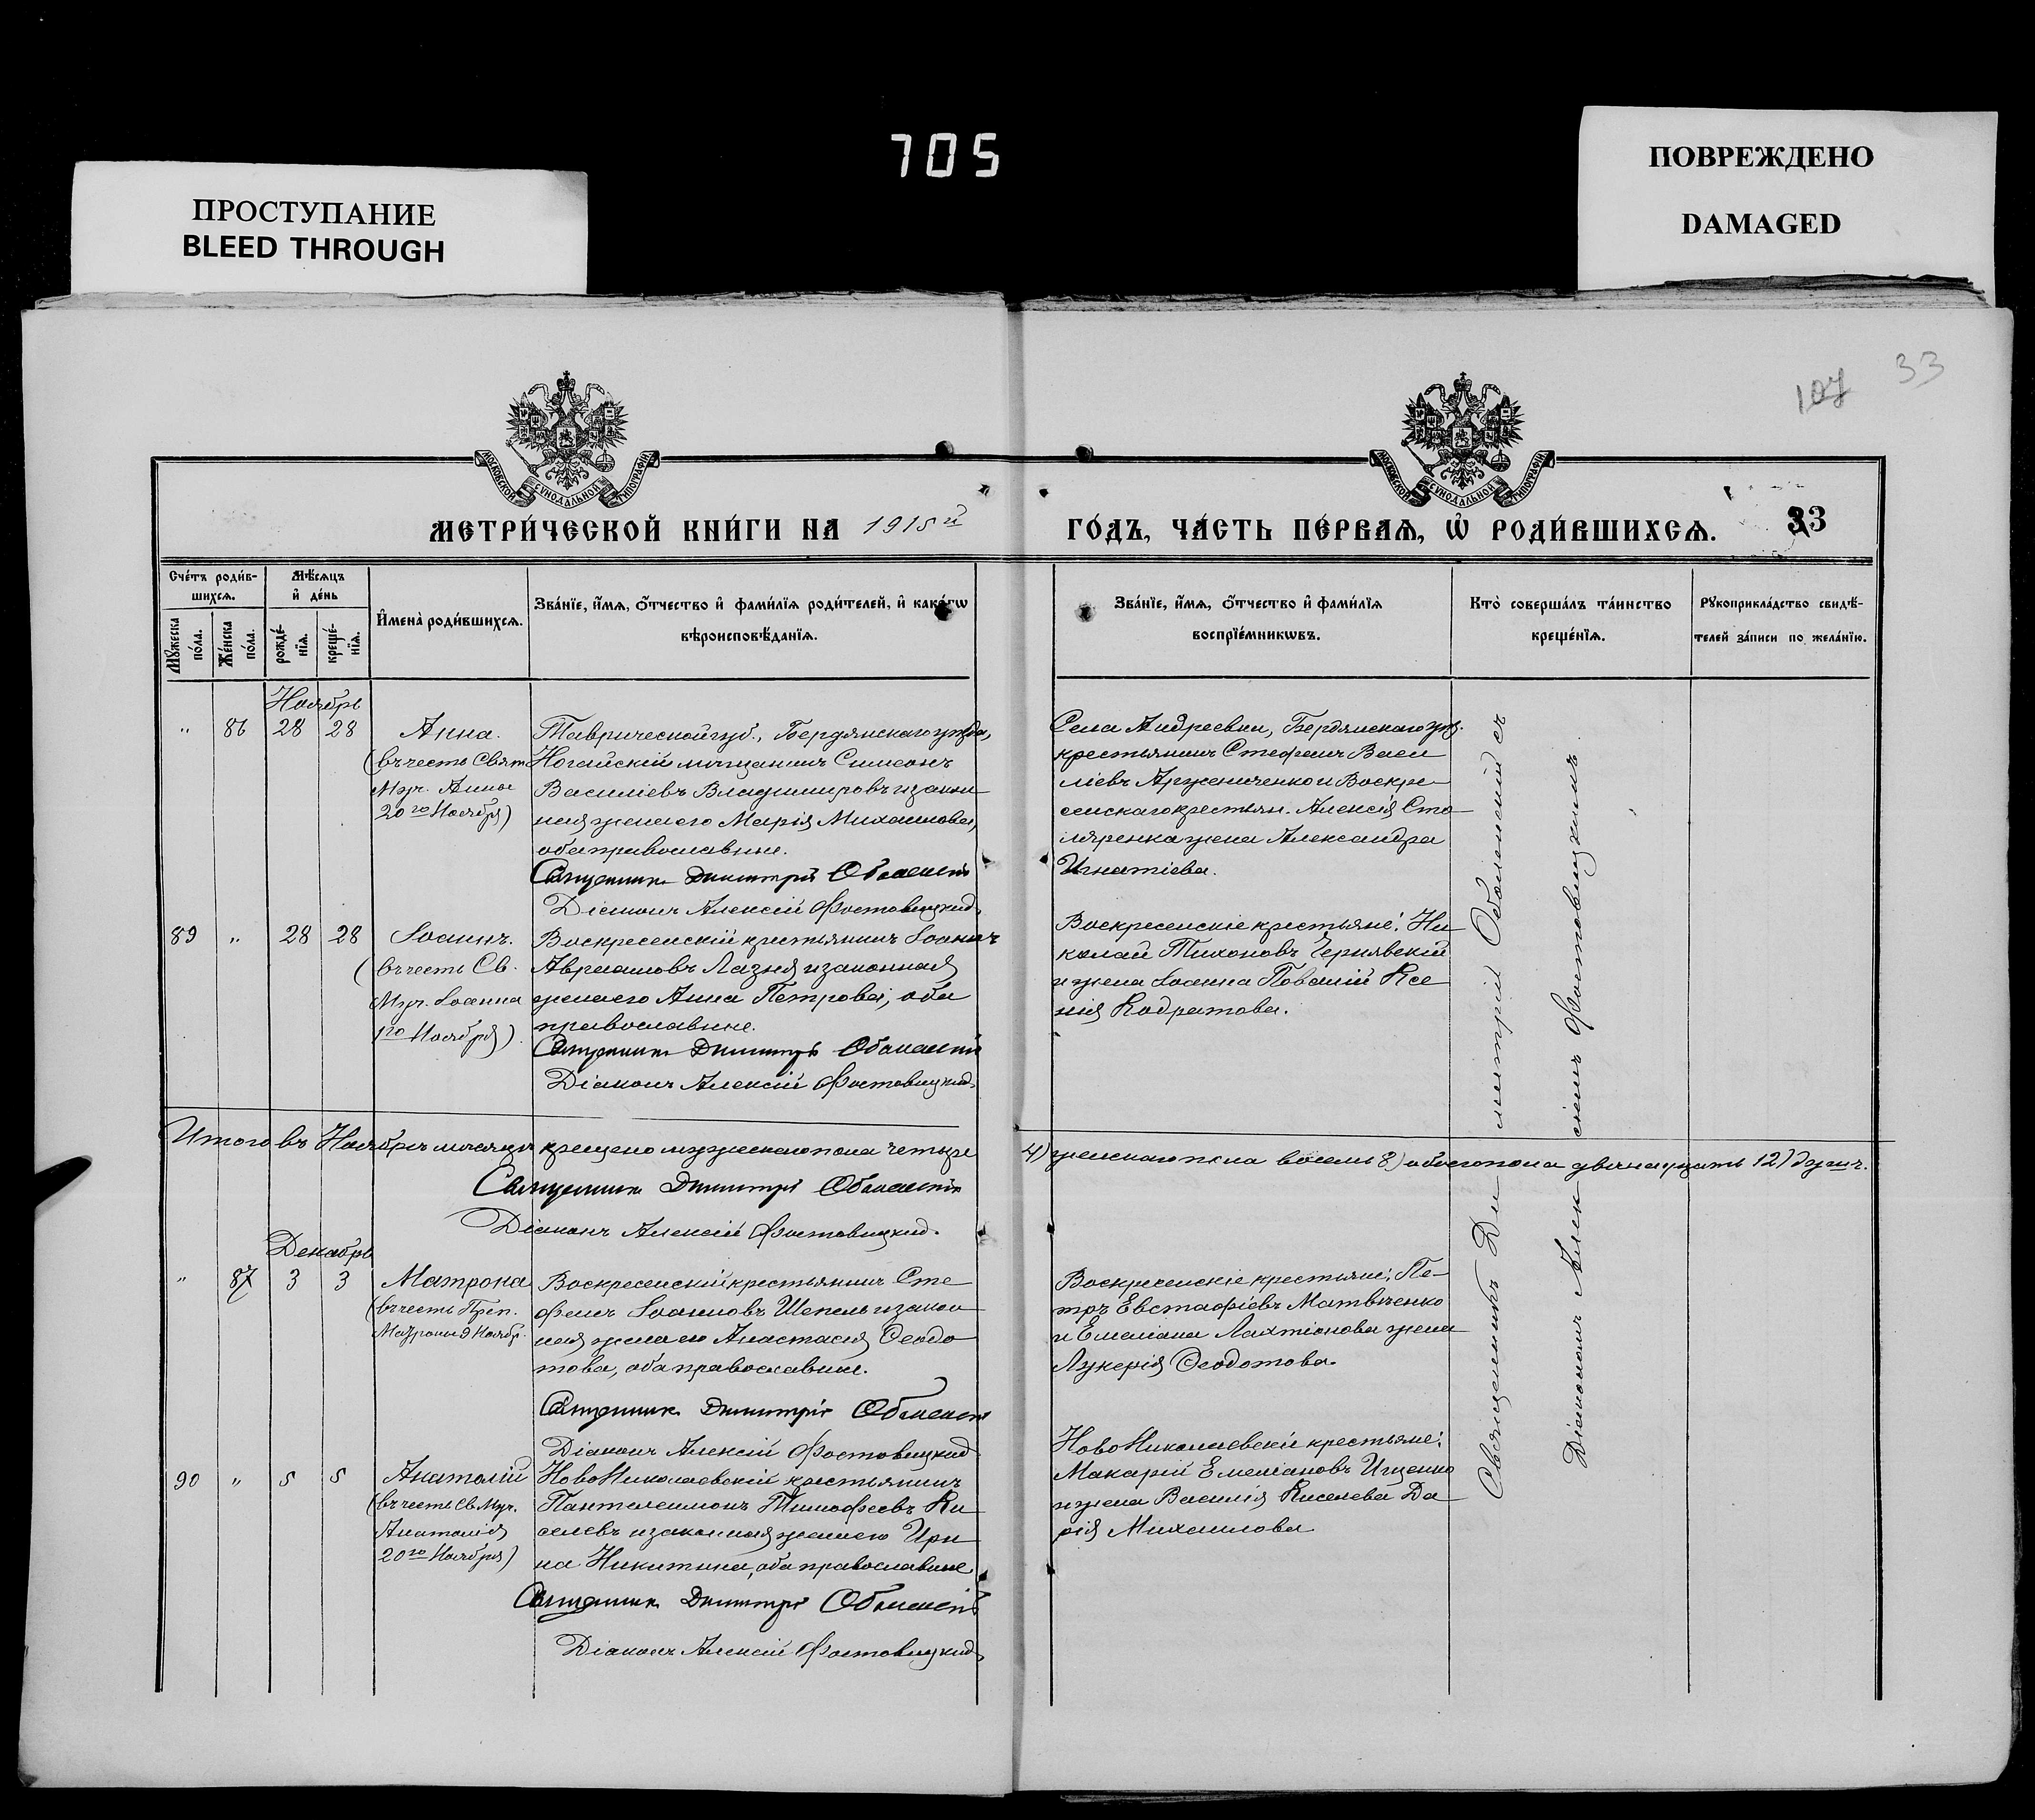 705
ПРОСТУПАНИЕ
BLEED THROUGH
ПОВРЕЖДЕНО
DAMAGED
107 33
МОСКОВСКОЙ СѴНОДАЛЬНОЙ ТИПОГРАФІИ
МОСКОВСКОЙ СѴНОДАЛЬНОЙ ТИПОГРАФІИ
МЕТРИ́ЧЕСКОЙ КНИ́ГИ НА 1915й
ГО́ДЪ, ЧА́СТЬ ПЕ́РВАѦ, Ѡ҆ РОДИ́ВШИХСѦ. 33
Сче́тъ роди́в-
шихсѧ.
Мꙋ́жеска по́ла.
Же́нска по́ла.
Мѣ́сѧцъ
и҆ де́нь
рожде́-
нїѧ.
креще́-
нїѧ.
И҆мена̀ роди́вшихсѧ.
Зва́нїе, и҆́мѧ, ѻ҆́тчество и҆ фами́лїѧ роди́телей, и҆ како́гѡ
вѣроисповѣ́данїѧ.
Зва́нїе, и҆́мѧ, ѻ҆́тчество и҆ фами́лїѧ
воспрїе́мникѡвъ.
Кто̀ соверша́лъ та́инство
креще́нїѧ.
Рꙋкоприкла́дство свидѣ́-
телей за́писи по жела́нїю.
Ноябрь
" 86 28 28 Анна.
(въ честь Свят.
Муч. Анны
20го Ноября)
Таврической губ., Бердянскаго уѣзда,
Ногайскій мѣщанинъ Симеонъ
Василіевъ Владимировъ и закон
ная жена его Марія Михаилова,
оба православные.
Священникъ Димитрій Оболенскій
Діаконъ Алексій Фостовицкий.
Села Андреевки, Бердянскаго уѣз.
крестьянинъ Стефанъ Васи
ліевъ и Воскре
сенскаго крестьян. Алексія Сто
ляренка жена Александра
Игнатіева.
89 " 28 28 Іоаннъ.
(въ честь Св.
Муч. Іоанна
1го Ноября)
Воскресенскій крестьянинъ Іоаннъ
Авраамовъ Лазня и законная
жена его Анна Петрова, оба
православные.
Священникъ Димитрій Оболенскій
Діаконъ Алексій Фостовицкий.
Воскресенскіе крестьяне: Ни
колай Тихоновъ Чернявскій
и жена Іоанна Ксе
нія Кодратова.
Итого въ Ноябрѣ мѣсяцѣ крещено мужескаго пола четыре
4) женскаго пола восемь 8) обоего пола двѣнадцать 12) душъ.
Священникъ Димитрій Оболенскій
Діаконъ Алексій Фостовицкий.
Декабрь
" 87 3 3 Матрона
(въ честь Преп.
Матроны 9 Ноябр.
Воскресенскій крестьянинъ Сте
фанъ Іоанновъ Шепель и закон
ная жена его Анастасія Ѳеодо
това, оба православные.
Священникъ Димитрій Оболенскій
Діаконъ Алексій Фостовицкий
Воскресенскіе крестьяне: Пе
тръ Евстафіевъ Матвѣенко
и Емеліана Лахтіонова жена
Лукерія Ѳеодотова.
90 " 5 5 Анатолій
(въ честь Св. Муч.
Анатолія
20го Ноября)
НовоНиколаевскій крестьянинъ
Пантелеимонъ Тимофеевъ Ки
селевъ и законная жена его Ири
на Никитина, оба православные
Священникъ Димитрій Оболенскій
Діаконъ Алексій Фостовицкий.
НовоНиколаевскіе крестьяне:
Макарій Емеліановъ Ищенко
и жена Василія Киселева Да
рія Михаилова
Священникъ Димитрій Оболенскій съ
Діакономъ Алексіемъ Фостовицкимъ.